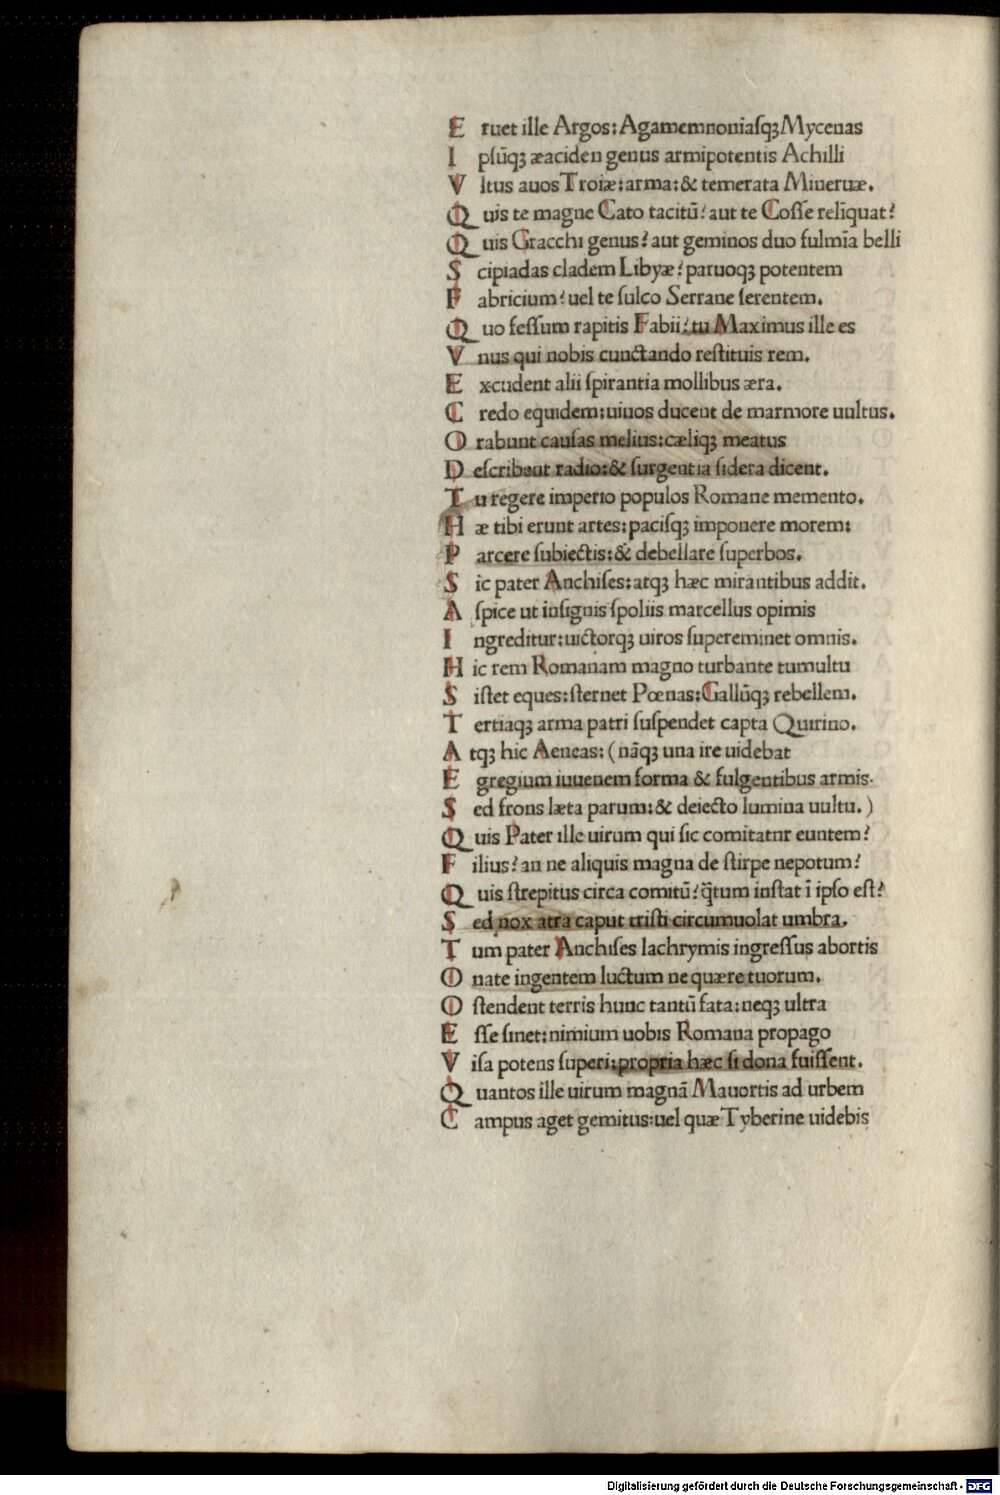 E ruet ille Argos: Agamemnoniasqꝫ Mycenas
I psūqꝫ æaciden genus armipotentis Achilli
V ltus auos Troiæ: arma: & temerata Mineruæ.
Q uis te magne Cato tacitū? aut te Cosse relīquat?
Q uis Gracchi genus? aut geminos duo fulmīa belli
S cipiadas cladem Libyæ? paruoqꝫ potentem
F abricium? uel te sulco Serrane serentem.
Q uo fessum rapitis Fabii? tu Maximus ille es
V nus qui nobis cunctando restituis rem.
E xcudent alii spirantia mollibus æra.
C redo equidem: uiuos ducent de marmore uultus.
O rabunt causas melius: cæliqꝫ meatus
D escribent radio: & surgentia sidera dicent.
T u regere imperio populos Romane memento.
H æ tibi erunt artes: pacisqꝫ imponere morem:
P arcere subiectis: & debellare superbos.
S ic pater Anchises: atqꝫ hæc mirantibus addit.
A spice ut insignis spoliis marcellus opimis
I ngreditur: uictorqꝫ uiros supereminet omnis.
H ic rem Romanam magno turbante tumultu
S istet eques: sternet Pœnas: Gallūqꝫ rebellem.
T ertiaqꝫ arma patri suspendet capta Quirino.
A tqꝫ hic Aeneas: (nāqꝫ una ire uidebat
E gregium iuuenem forma & fulgentibus armis.
S ed frons læta parum: & deiecto lumina uultu.)
Q uis Pater ille uirum qui sic comitatnr euntem?
F ilius? an ne aliquis magna de stirpe nepotum?
Q uis strepitus circa comitū? q̄tum instat ī ipso est?
S ed nox atra caput tristi circumuolat umbra.
T um pater Anchises lachrymis ingressus abortis
O nate ingentem luctum ne quære tuorum.
O stendent terris hunc tantū fata: neqꝫ ultra
E sse sinet: nimium uobis Romana propago
V isa potens superi: propria hæc si dona fuissent.
Q uantos ille uirum magnā Mauortis ad urbem
C ampus aget gemitus: uel quæ Tyberine uidebis
Digitalisierung gefördert durch die Deutsche Forschungsgemeinschaft - DFG